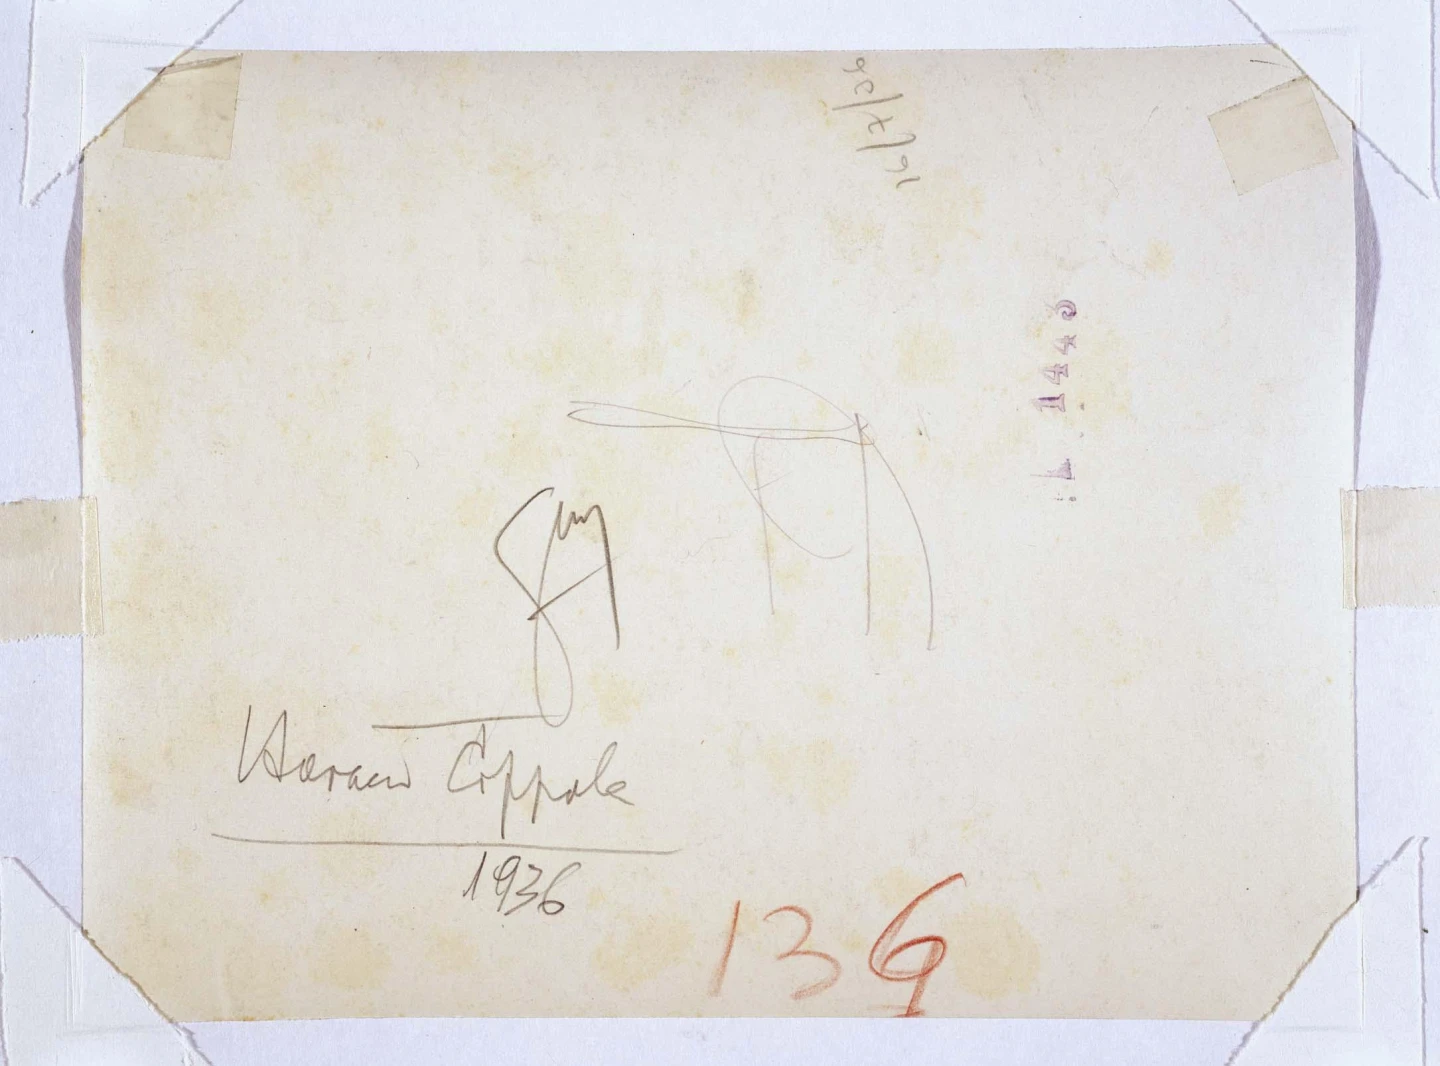 16/7/36
1440
Horacio Coppola
1936
136